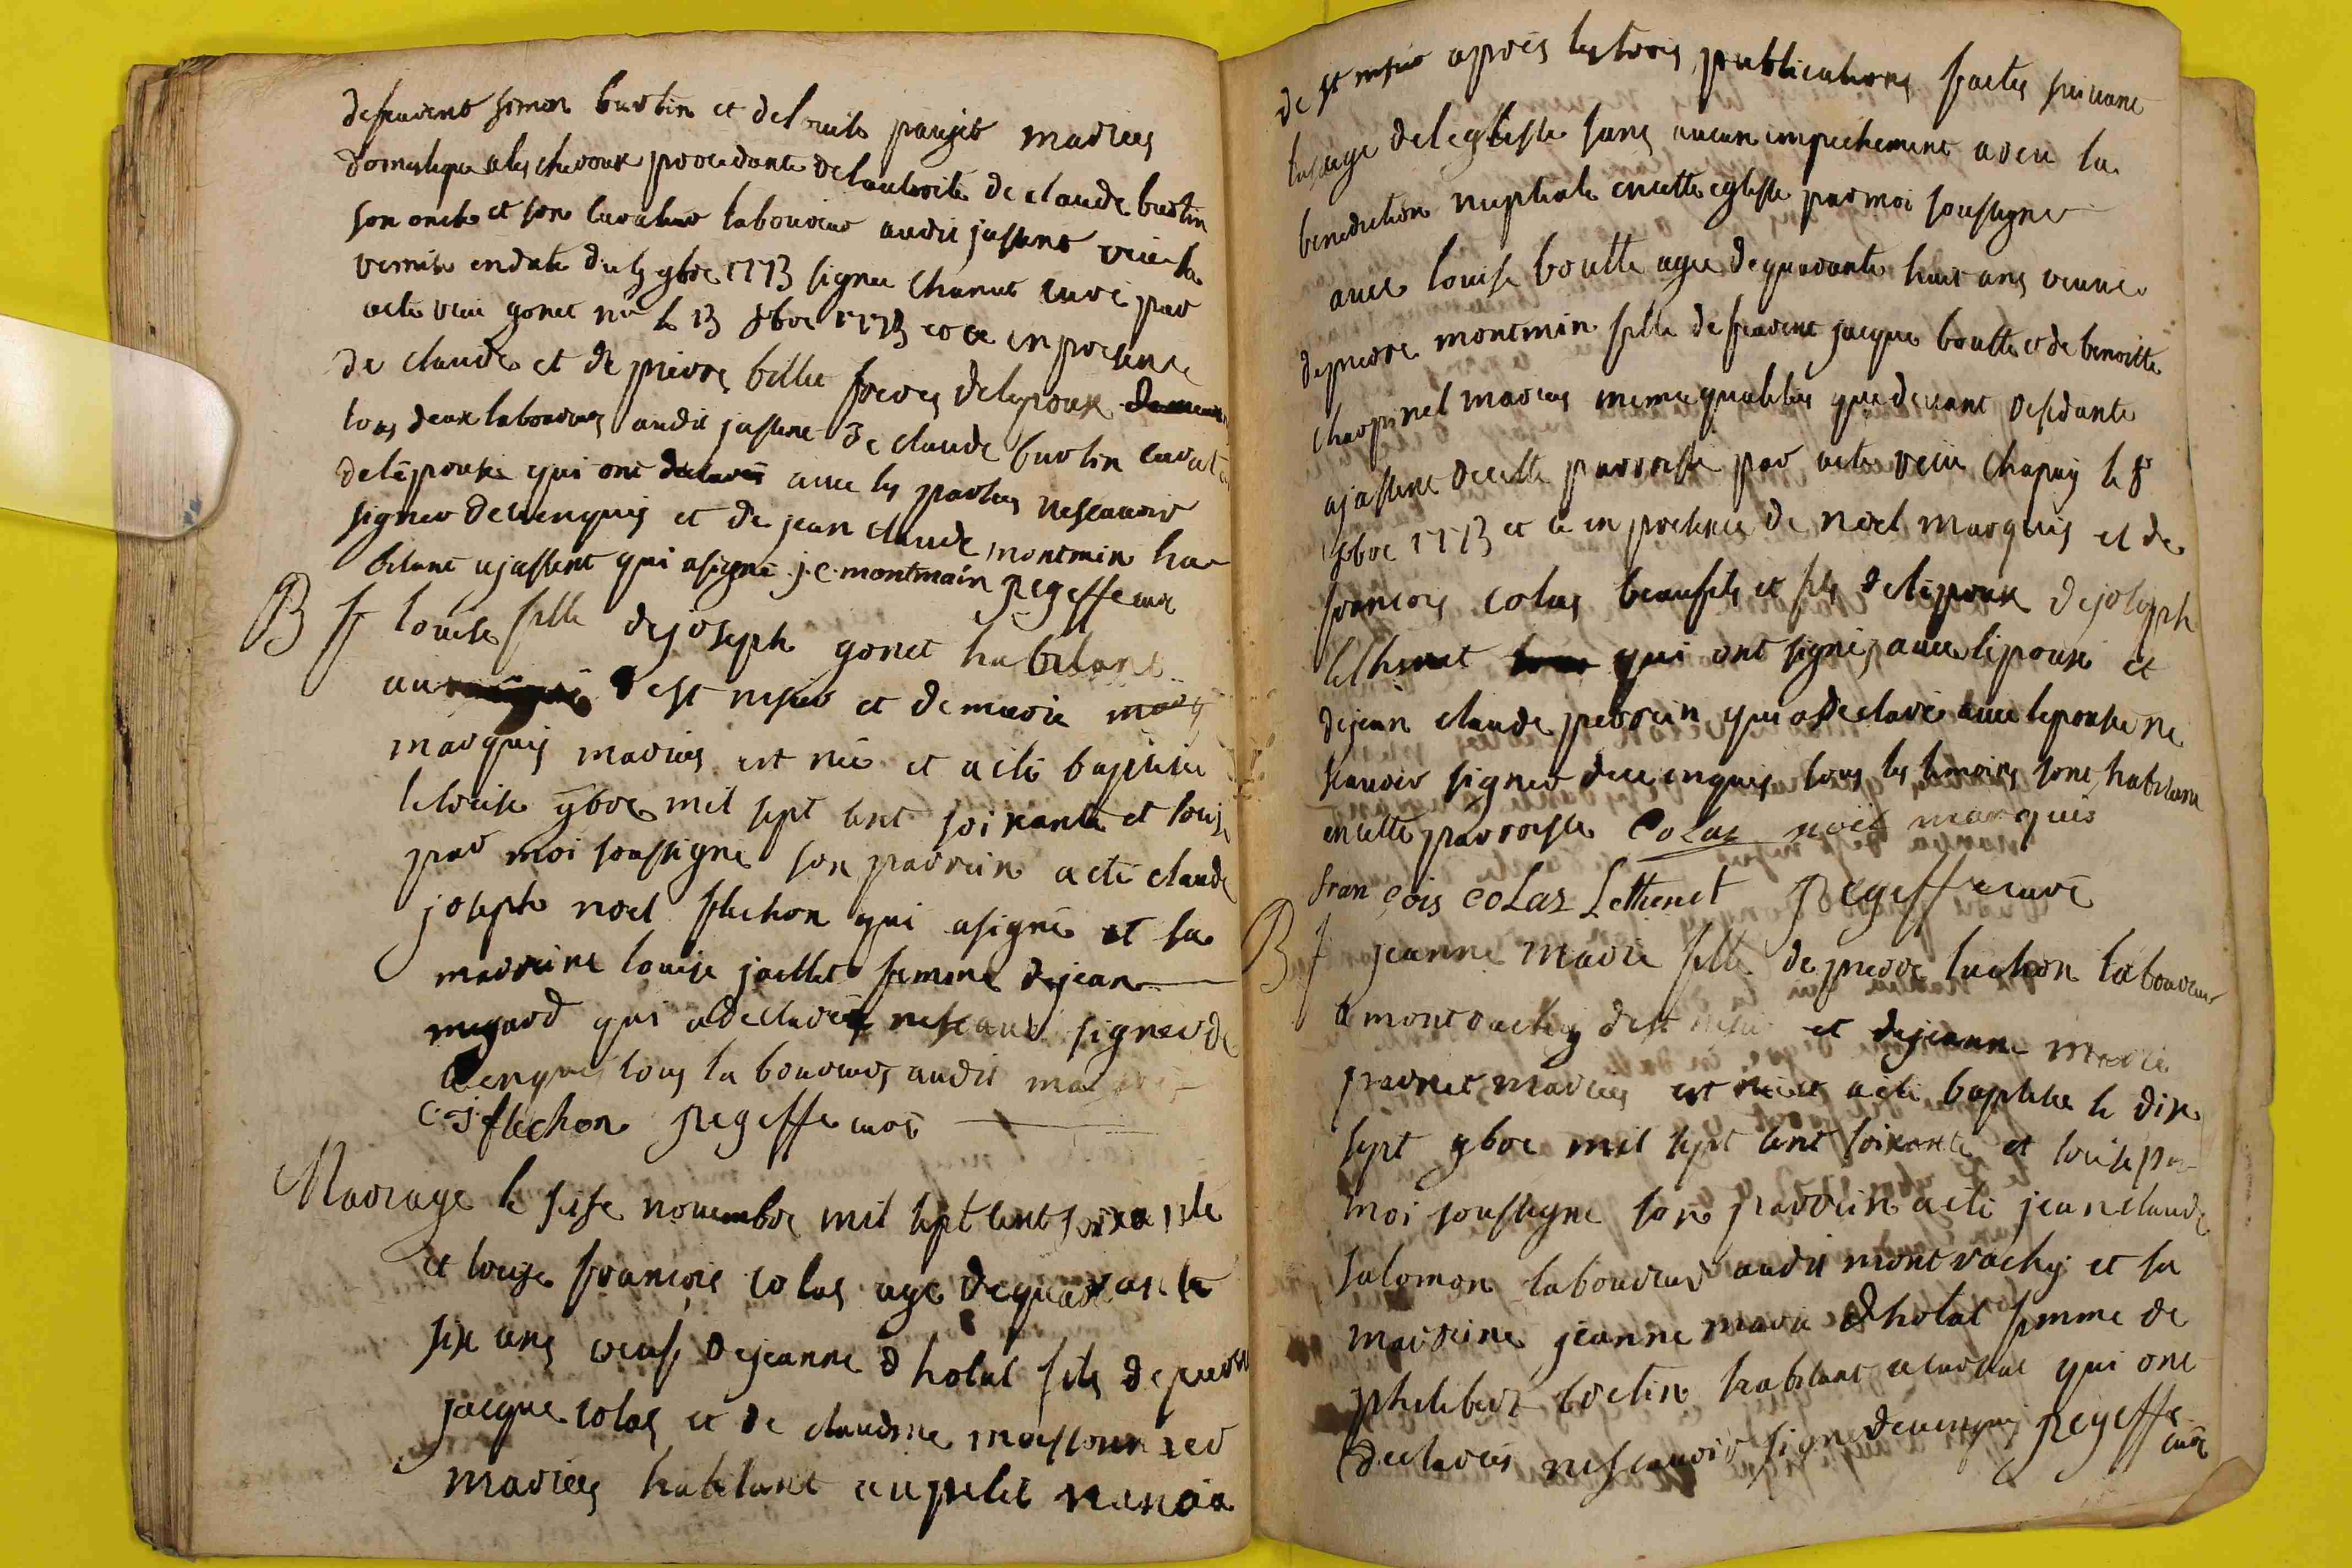 defeurent simon burtin et del marie paujet mariees
domestique a les chevroux procedante de lautorité de claude burtin
son oncle et son curateur laboureur audit jassens veue la
remise en date du 9bre 1773 signée Chanut curé par
acte reçu gonet nre le 13 8bre 1773 et ce en presence
de claude et de pierre billet freres delepoux
tous deux laboureurs audit jassent de claude burtin curat
delépouse qui ont avec les parties ne scavoir
signer de ce enquis et de jean claude montmin ha
bitant a jassent qui a signé j.c. montmain pegeffe curé
B f louise fille de joseph gonet habitant
au dest nisier et de marie
marquis mariés est née et a été baptisée
le treise 9bre mil sept cent soixante et treise
par moi soussigné son parrein a eté claude
joseph noel flechon qui a signé et sa
marreine louise jaillet femme de jean
megard qui a declaré ne scavo signer de
ce enquis tous laboureurs audit
c-j flechon pegeffe curé
Mariage le seise novembre mil sept cent soixante
et treize françois colas agé de quarante
six ans veuf de jeanne dholat fils de pierre
jacque colas et de claudine massonnier
mariées habitant au petit nanoia
de st nisier apres les trois publications faites suivant
lusage del eglisse sans aucun empechement a reçu la
benediction nuptiale en cette eglisse par moi soussigné
avec louise boulte agée de quarante huit ans veuve
de pierre montmin fille de feurent jacque boulte et de benoitte
charpinel mariés meme qualités que devant residante
a jassent de cette parroisse par acte reçu Chapuy le 8
9bre 1773 et ce en presence de noel marquis et de
françois colas beaufils et fils de lépoux de joseph
lethenet qui ont signés avec lépoux et
de jean claude perrein qui a declaré avec lepouse ne
scavoir signer de ce enquis tous les temoins sont habitant
en cette parroisse Colas noël marquis
françois colas Lethenet pegeffe curé
B f jeanne marie fille de pierre luchon laboureur
a montrachy dest nisier et de jeanne marie
pravnet mariés est née et a été baptisée le dix
sept 9bre mil sept cent soixante et treise par
moi soussigné son parrein a eté jean claude
salomon laboureur audit montrachy et sa
marreine jeanne marie dholat femme de
philibert boclin habitant a curciat qui ont
declarés ne scavoir signe de ce enquis pegeffe
curé